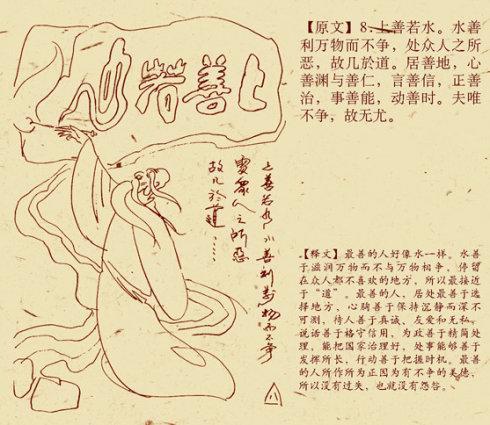 上善若水
【原文】8、上善若水。水善
利万物而不争，处众人之所
恶，故几於道。居善地，心
善渊与善仁，言善信，正善
治，事善能，动善时。夫唯
不争，故无尤。
上善若水水善利萬物而不争
處衆人之所惡
故几於道……
八
【释文】最善的人好像水一样。水善
于滋润万物而不与万物相争，停留
在众人都不喜欢的地方，所以最接近
于“道”。最善的人，居处最善于选
择地方，心胸善于保持沉静而深不
可测，待人善于真诚、友爱和无私，
说话善于格守信用，为政善于精简处
理，能把国家治理好，处事能够善于
发挥所长，行动善于把握时机。最善
的人所作所为正因为有不争的美德，
所以没有过失，也就没有怨咎。